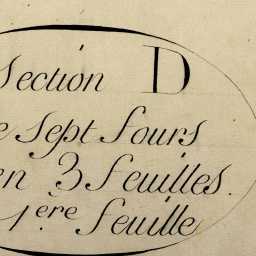 Section D
e Sept fours
en 3 feuilles.
1ère feuille